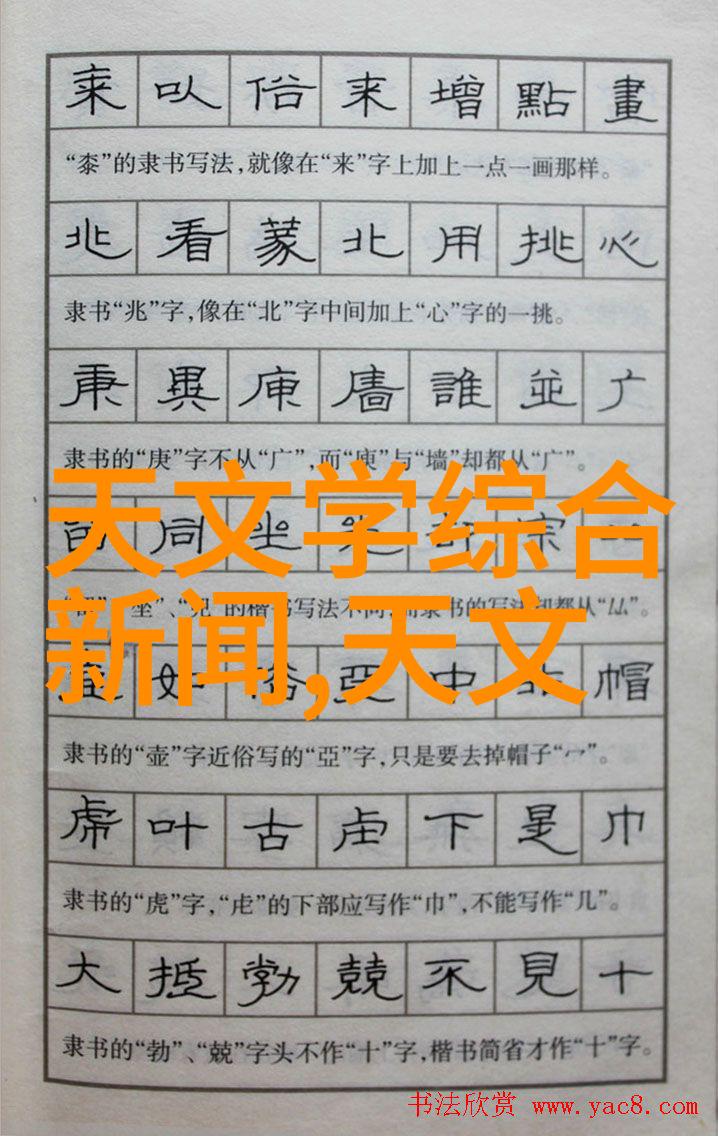 桼 以 俗 来 增 點 畫
“桼”的隶书写法,就像在“来”字上加上一点一画那样。
兆 看 蒙 北 用 挑 心
隶书“兆”字,像在“北”字中间加上“心”字的一挑。
庚 異 庾 廧 誰 並 广
隶书的“庚”字不从“广”,而“庾”与“墙”却都从“广”。
同 坐
天文学综合
的楷书写法不同,而隶书的写法却都从
新闻,天文
如 俗 亞 中 帽
隶书的“壶”字近俗写的“亞”字,只是要去掉帽子“宀”。
虎 叶 古 虍 下 是 巾
隶书的“虎”字,“虍”的下部应写作“巾”,不能写作“几”。
大 抵 勃 兢 不 見 十
隶书的“勃”、“兢”字头不作“十”字,楷书简省才作“十”字。
书法欣赏 www.yac8.com